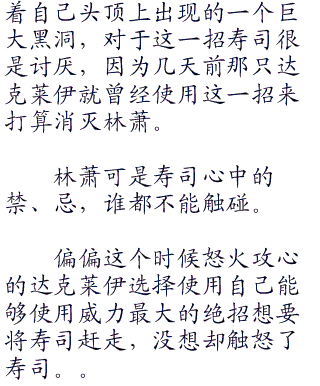 着自己头顶上出现的一个巨
大黑洞，对于这一招寿司很
是讨厌，因为几天前那只达
克莱伊就曾经使用这一招来
打算消灭林萧。
林萧可是寿司心中的
禁、忌，谁都不能触碰。
偏偏这个时候怒火攻心
的达克莱伊选择使用自己能
够使用威力最大的绝招想要
将寿司赶走，没想却触怒了
寿司。。